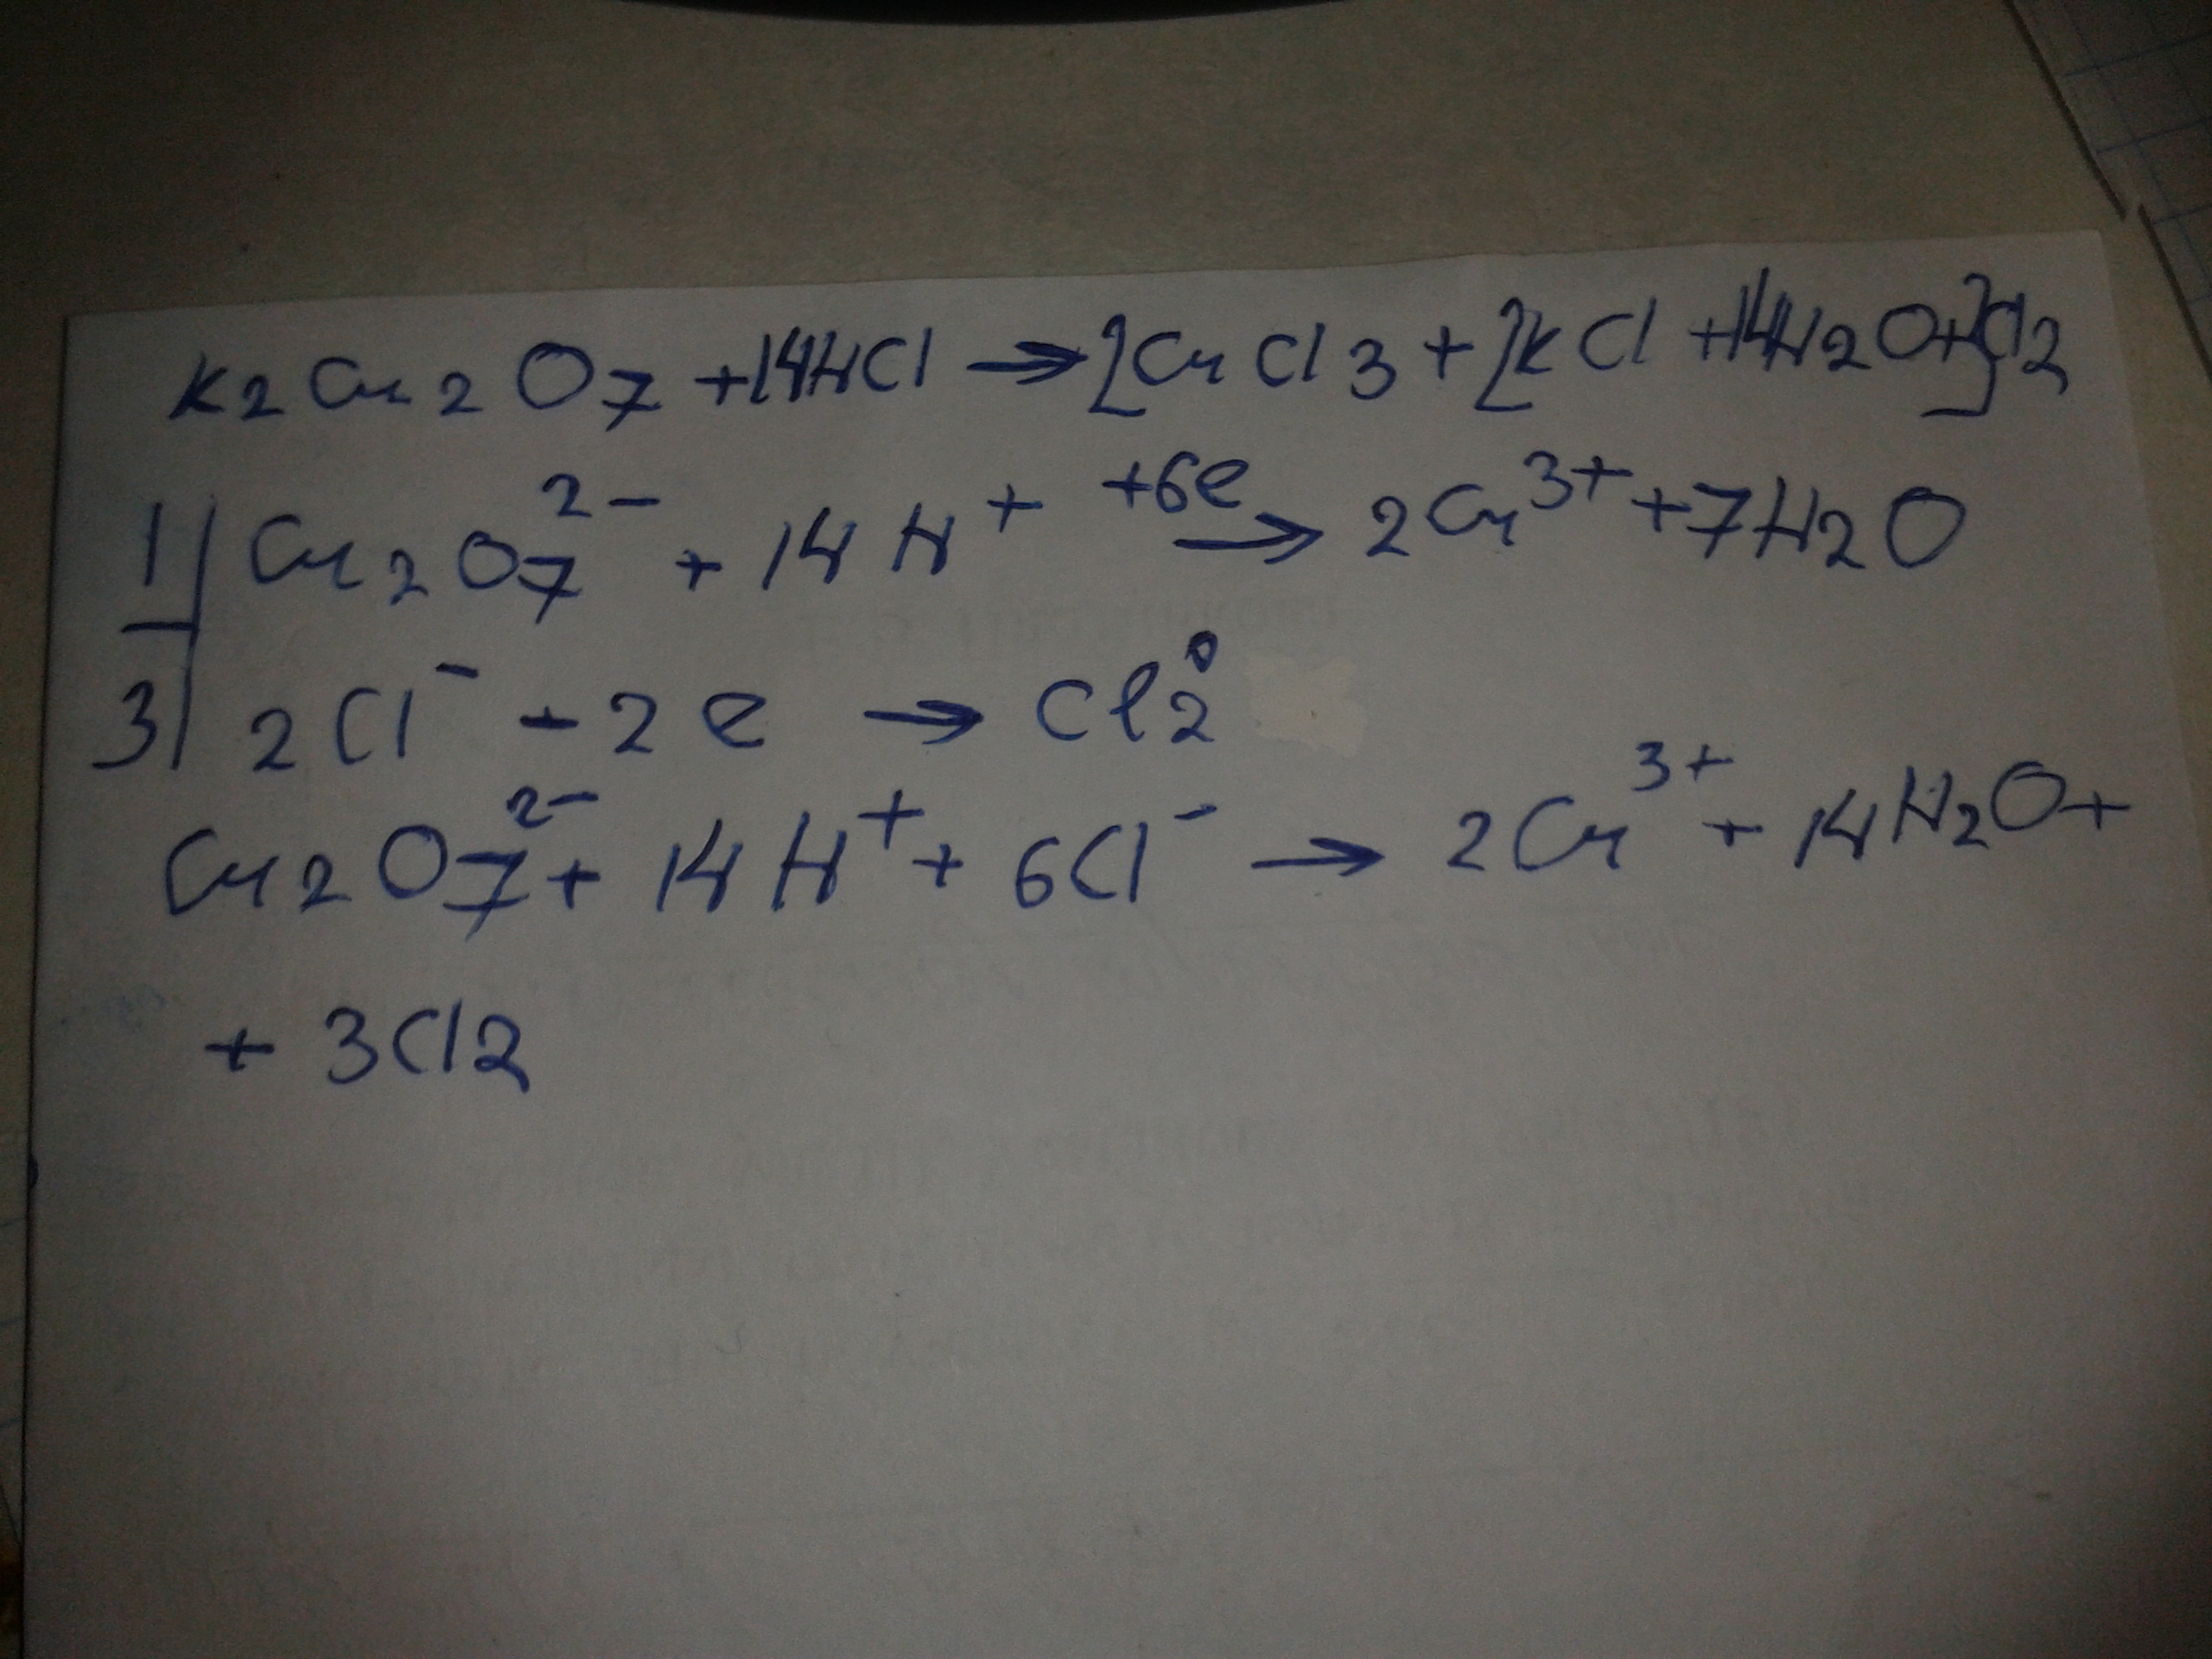 K2Cr2O7 + 14HCl → 2CrCl3 + 2KCl + 14H2O + 3Cl2
1 | Cr2O7^2- + 14H^+ +6e → 2Cr^3+ + 7H2O
3 | 2Cl^- - 2e → Cl2^0
Cr2O7^2- + 14H^+ + 6Cl^- → 2Cr^3+ + 14H2O +
+ 3Cl2